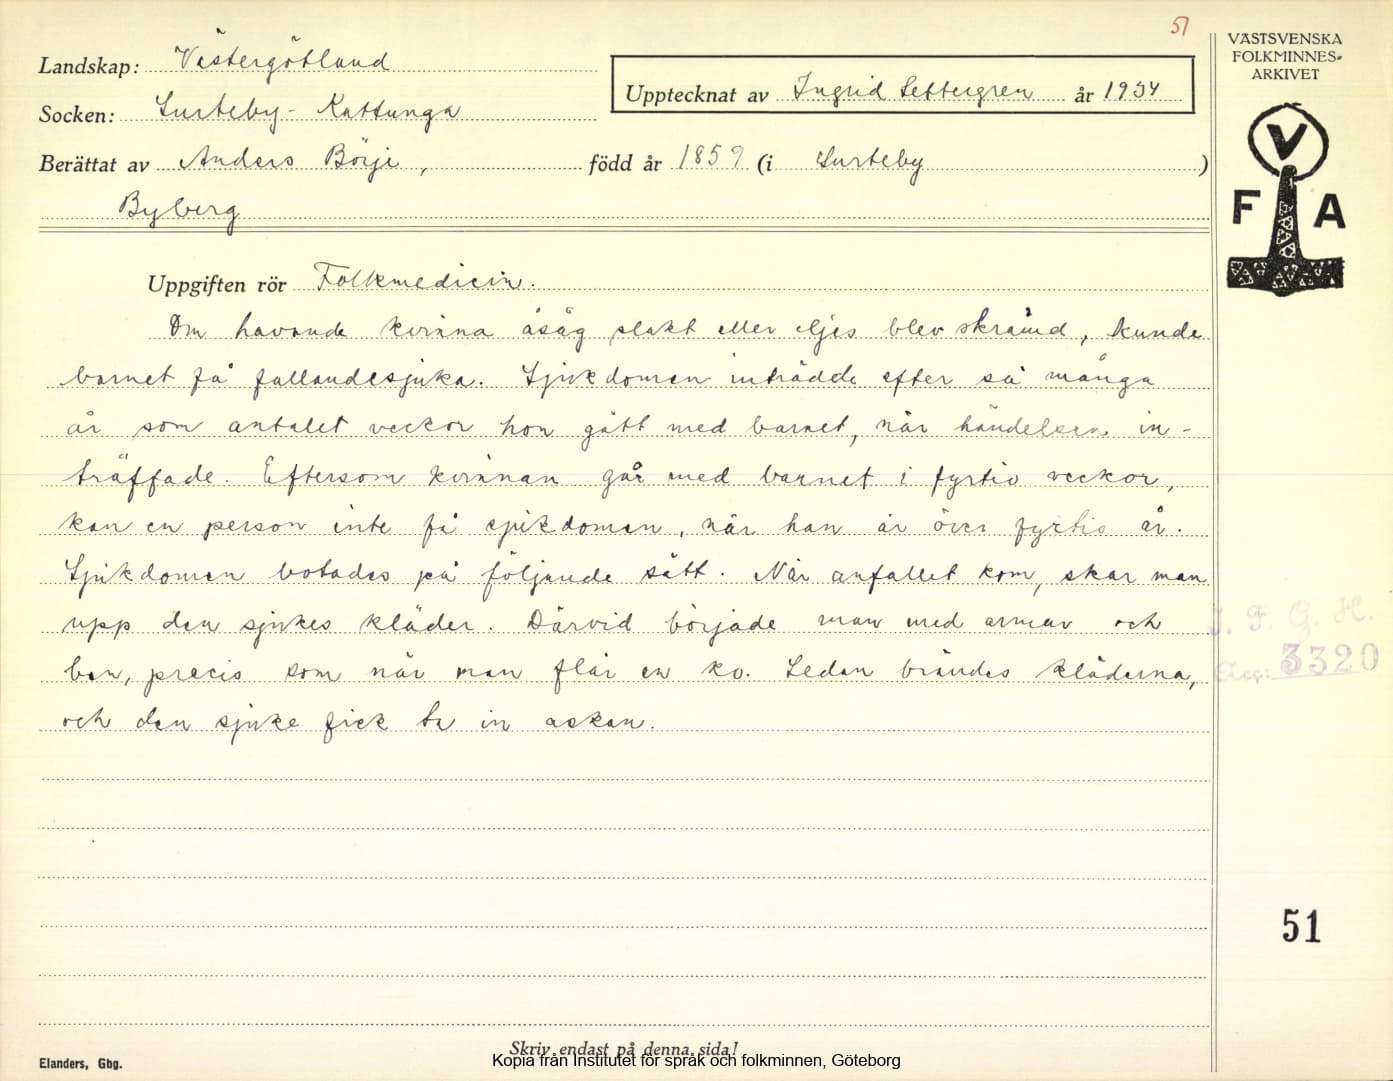 51
Landskap: Västergötland
Socken: Surteby - Kattunga
Upptecknat av Ingrid Settergren år 1934
Berättat av Anders Börje, född år 1859 (i Surteby)
Byberg
Uppgiften rör Folkmedicin.
Om havande kvinna åsåg slakt eller eljes blev skrämd, kunde
barnet få fallandesjuka. Sjukdomen inträdde efter så många
år som antalet veckor hon gått med barnet, när händelsen in-
träffade. Eftersom kvinnan går med barnet i fyrtio veckor,
kan en person inte få sjukdomen, när han är över fyrtio år.
Sjukdomen botades på följande sätt. När anfallet kom, skar man
upp den sjukes kläder. Därvid började man med armar och
ben, precis som när man flår en ko. Sedan brändes kläderna,
och den sjuke fick ta in askan.
VÄSTSVENSKA
FOLKMINNES-
ARKIVET
V
F A
I. F. G. H.
Acc: 3320
51
Skriv endast på denna sida!
Elanders, Gbg.
Kopia från Institutet för språk och folkminnen, Göteborg